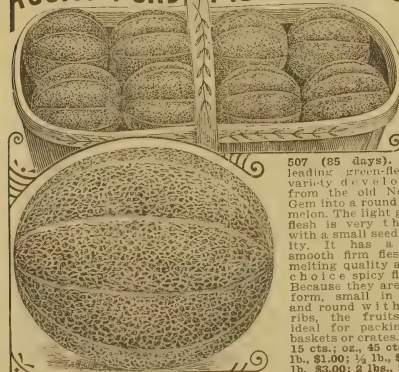 507 (85 days).
leading green-fle
variety develo
from the old Ne
Gem into a round
melon. The light g
flesh is very th
with a small seed
ity. It has a
smooth firm fles
melting quality a
choice spicy fl
Because they are
form, small in
and round with
ribs, the fruits
ideal for packin
baskets or crates.
15 cts.; oz., 45 cts
lb., $1.00; ½ lb., $
lb., $3.00; 2 lbs.,